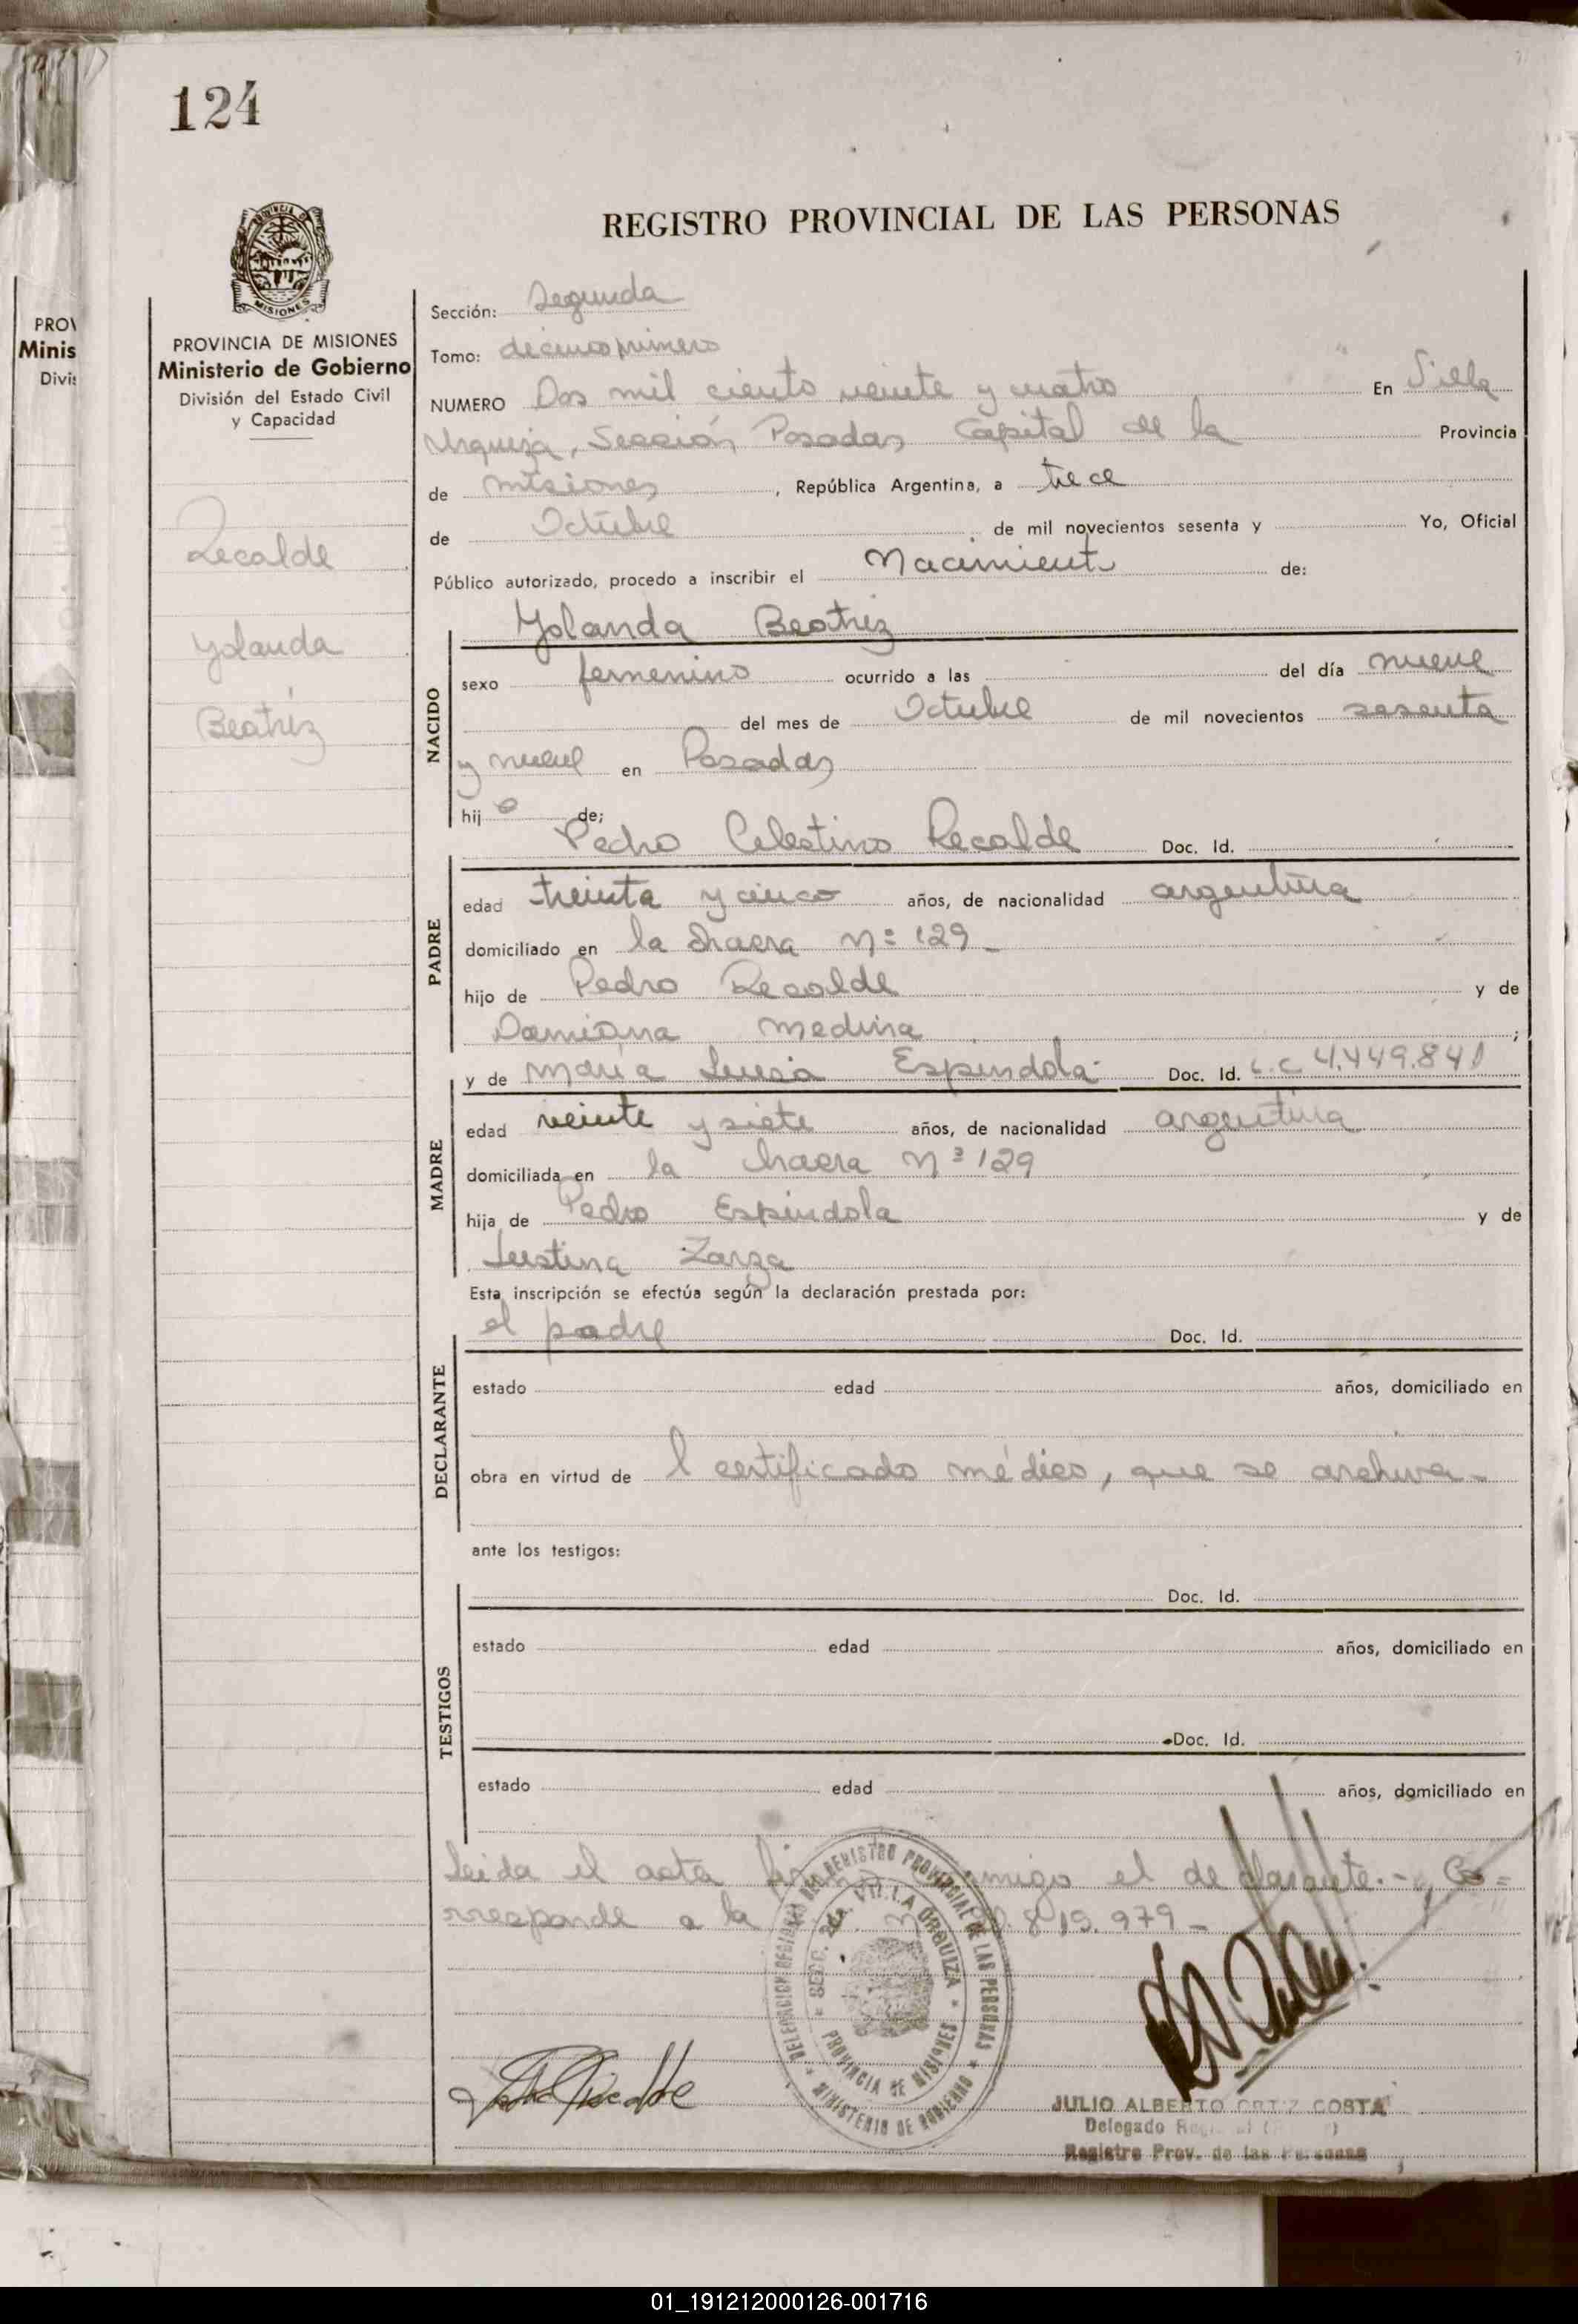 124
REGISTRO PROVINCIAL DE LAS PERSONAS
MISIONES
PROVINCIA DE MISIONES
Ministerio de Gobierno
División del Estado Civil
y Capacidad
Recalde
Yolanda
Beatriz
PROV
Minis
Divis
Sección: Segunda
Tomo: décimo primero
NUMERO Dos mil ciento veinte y cuatro En Villa
Urquiza, Sección Posadas Capital de la Provincia
de Misiones, República Argentina, a trece
de Octubre de mil novecientos sesenta y Yo, Oficial
Público autorizado, procedo a inscribir el Nacimiento de:
NACIDO
Yolanda Beatriz
sexo femenino ocurrido a las del día nueve
del mes de Octubre de mil novecientos sesenta
y nueve en Posadas
hij a de;
Pedro Celestino Recalde Doc. Id.
PADRE
edad treinta y cinco años, de nacionalidad argentina
domiciliado en la chacra Nº 129-
hijo de Pedro Recalde y de
Damiana Medina;
y de María Luisa Espindola- Doc. Id. L.C 4.449.841
MADRE
edad veinte y siete años, de nacionalidad argentina
domiciliada en la chacra Nº 129
hija de Pedro Espindola y de
Justina Zarza
Esta inscripción se efectúa según la declaración prestada por:
el padre Doc. Id.
DECLARANTE
estado edad años, domiciliado en
obra en virtud de l certificado médico, que se archiva-
ante los testigos:
Doc. Id.
TESTIGOS
estado edad años, domiciliado en
Doc. Id.
estado edad años, domiciliado en
Leida el acta conmigo el declarante.- Co=
rresponde a la 819.979-
DELEGACION REGIONAL DEL REGISTRO PROVINCIAL DE LAS PERSONAS
MINISTERIO DE GOBIERNO
SECC. 2da. VILLA URQUIZA
PROVINCIA DE MISIONES
JULIO ALBERTO ORTIZ COSTA
Delegado
Registro Prov. de las Personas
01_191212000126-001716